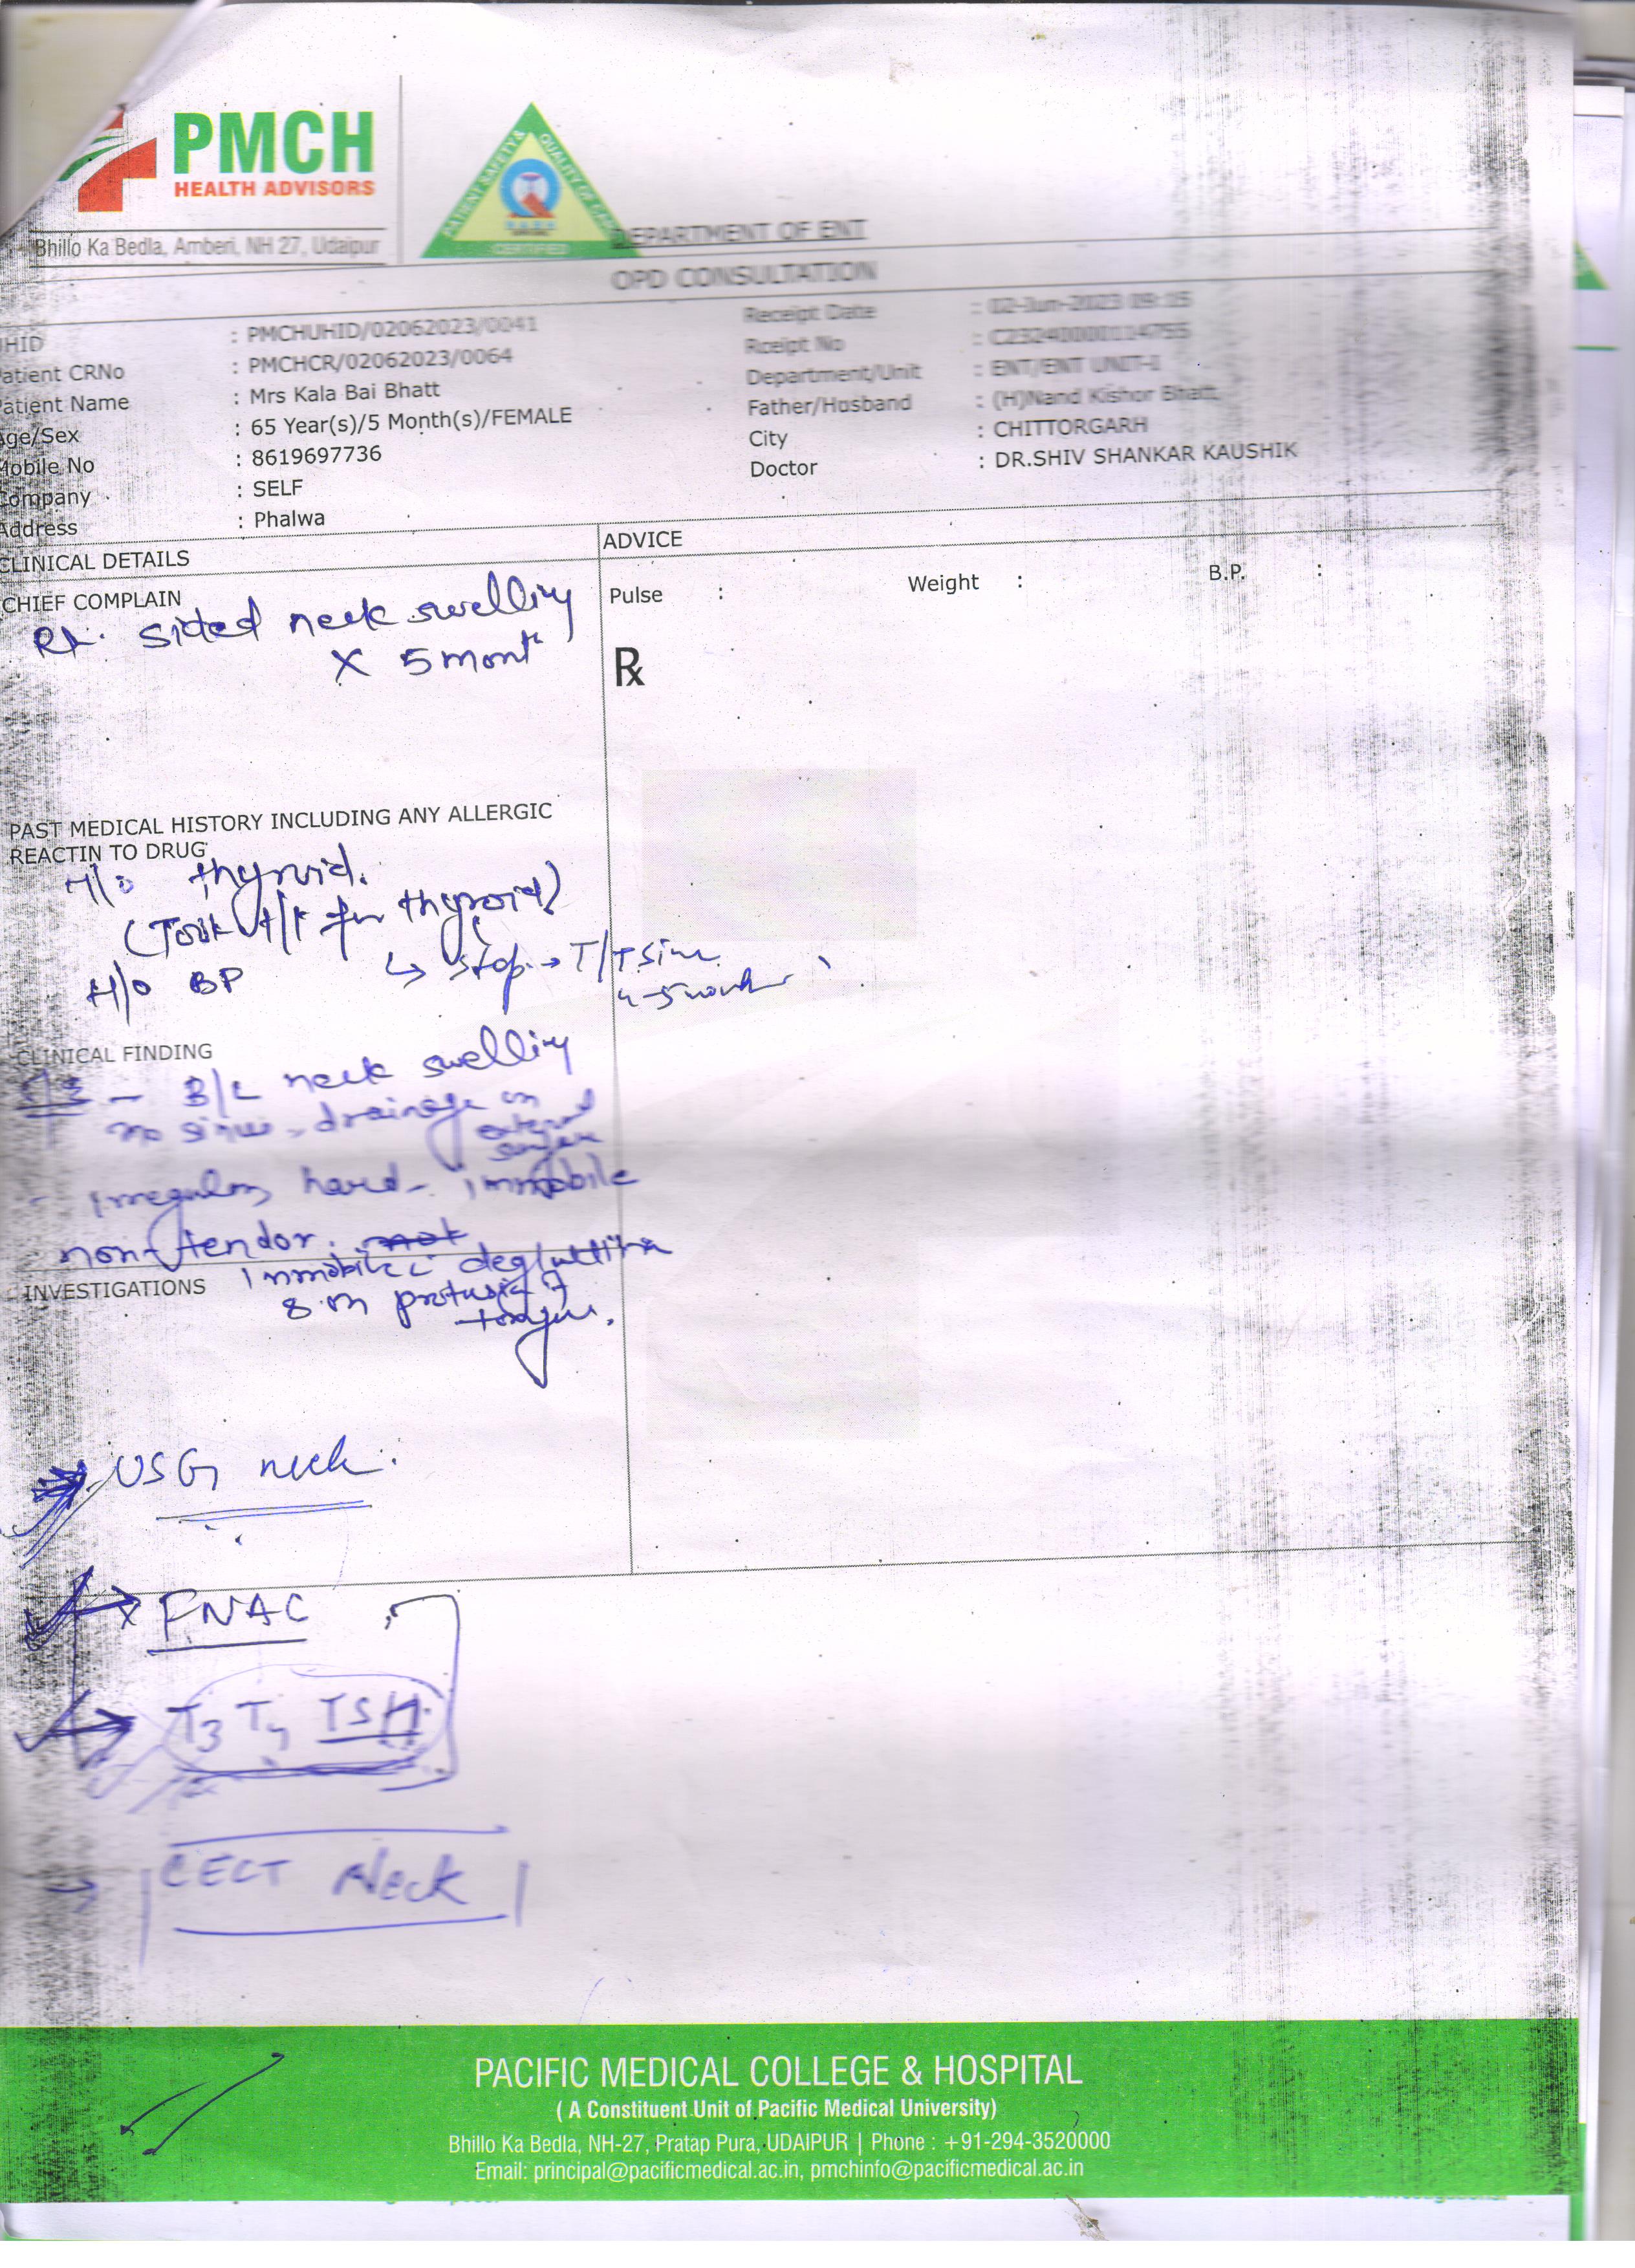 PMCH
HEALTH ADVISORS
PATIENT SAFETY & QUALITY OF CARE
CERTIFIED
Bhillo Ka Bedla, Amberi, NH 27, Udaipur
DEPARTMENT OF ENT
OPD CONSULTATION
HID : PMCHUHID/02062023/0041
atient CRNo : PMCHCR/02062023/0064
atient Name : Mrs Kala Bai Bhatt
Age/Sex : 65 Year(s)/5 Month(s)/FEMALE
Mobile No : 8619697736
Company : SELF
Address : Phalwa
Receipt Date : 02-Jun-2023 09:15
Rceipt No
Department/Unit : ENT/ENT UNIT-I
Father/Husband : (H)Nand Kishor Bhatt,
City : CHITTORGARH
Doctor : DR.SHIV SHANKAR KAUSHIK
CLINICAL DETAILS
ADVICE
CHIEF COMPLAIN
Pulse : Weight : B.P. :
Rt. sided neck swelling
x 5 mont
Rx
PAST MEDICAL HISTORY INCLUDING ANY ALLERGIC
REACTIN TO DRUG
H/o thyroid.
(Took t/t for thyroid)
↳ stop → T/T since
4-5 month
H/O BP
CLINICAL FINDING
- B/L neck swelling
no sinus, drainage on
external
surface
- irregular, hard - immobile
non-tender. not
immobile c deglutition
& on protusion of
tongue.
INVESTIGATIONS
USG neck.
x FNAC
T3 T4 TSH
→ CECT Neck
PACIFIC MEDICAL COLLEGE & HOSPITAL
( A Constituent Unit of Pacific Medical University)
Bhillo Ka Bedla, NH-27, Pratap Pura, UDAIPUR | Phone : +91-294-3520000
Email: principal@pacificmedical.ac.in, pmchinfo@pacificmedical.ac.in